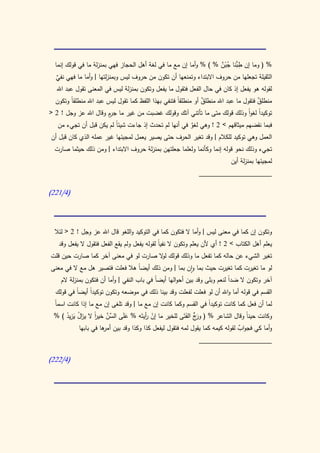 % ( وما إن طِبُّنا جُبْنٌ % ( % وأما إن مع ما في لغة أهل الحجاز فهي بمنزلة ما في قولك إنما
الثقيلة تجعلها من حروف الابتداء وتمنعها أن تكون من حروف ليس وبمنزلتها | وأما ما فهي نفيٌ
لقوله هو يفعل إذ كان في حال الفعل فتقول ما يفعل وتكون بمنزلة ليس في المعنى تقول عبد الله
منطلقٌ فتقول ما عبد الله منطلقٌ أو منطلقاً فتنفي بهذا اللفظ كما تقول ليس عبد الله منطلقاً وتكون
توكيداً لغواً وذلك قولك متى ما تأتني آتك وقولك غضبت من غير ما جرمٍ وقال الله عز وجل ! 2 <
فبما نقضهم ميثاقهم > 2 ! وهي لغوٌ في أنها لم تحدث إذ جاءت شيئاً لم يكن قبل أن تجيء من
العمل وهي توكيد للكلام | وقد تغير الحرف حتى يصير يعمل لمجيئها غير عمله الذي كان قبل أن
تجيء وذلك نحو قوله إنما وكأنما ولعلما جعلتهن بمنزلة حروف الابتداء | ومن ذلك حيثما صارت
لمجيئها بمنزلة أين
(221/4)
وتكون إن كما في معنى ليس | وأما لا فتكون كما في التوكيد واللغو قال الله عز وجل ! 2 < لئلا
يعلم أهل الكتاب > 2 ! أي لأن يعلم وتكون لا نفياً لقوله يفعل ولم يقع الفعل فتقول لا يفعل وقد
تغير الشيء عن حاله كما تفعل ما وذلك قولك لولا صارت لو في معنى آخر كما صارت حين قلت
لو ما تغيرت كما تغيرت حيث بما وإن بما | ومن ذلك أيضاً هلا فعلت فتصير هل مع لا في معنى
آخر وتكون لا ضداً لنعم وبلى وقد بين أحوالها أيضاً في باب النفي | وأما أن فتكون بمنزلة لام
القسم في قوله أما والله أن لو فعلت لفعلت وقد بينا ذلك في موضعه وتكون توكيداً أيضاً في قولك
لما أن فعل كما كانت توكيداً في القسم وكما كانت إن مع ما | وقد تلغى إن مع ما إذا كانت اسماً
وكانت حيناً وقال الشاعر % ( ورجِّ الفتى للخير ما إنْ رأيتَه % عَلَى السِّنِّ خيراً لا يزالُ يَزيدُ ( %
وأما كي فجوابٌ لقوله كيمه كما يقول لمه فتقول ليفعل كذا وكذا وقد بين أمرها في بابها
(222/4)